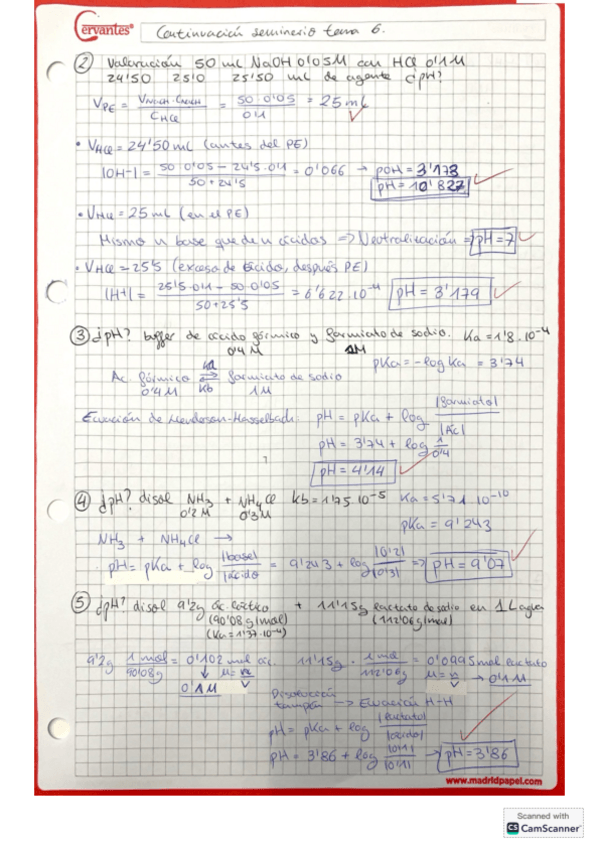 Cervantes® Continuación seminario tema 6.
② Valoración 50 mL NaOH 0'05M con HCl 0'1M
24'50 25'0 25'50 mL de agente ¿pH?
V_PE = V_NaOH · C_NaOH / C_HCl = 50 · 0'05 / 0'1 = 25 mL
• V_HCl = 24'50 mL (antes del PE)
|OH-| = 50 · 0'05 - 24'5 · 0'1 / 50 + 24'5 = 0'066 → pOH = 3'173
pH = 10'827
• V_HCl = 25 mL (en el PE)
Mismo n base que de n ácidos => Neutralización => pH = 7
• V_HCl = 25'5 (exceso de ácidos, después PE)
|H+| = 25'5 · 0'1 - 50 · 0'05 / 50 + 25'5 = 6'622 · 10^-4 pH = 3'179
③ ¿pH? buffer de ácido fórmico y formiato de sodio. Ka = 1'8 · 10^-4
0'4 M 1M
pKa = -log Ka = 3'74
Ac. fórmico ⇌ formiato de sodio
Ka
0'4 M Kb 1M
Ecuación de Henderson-Hasselbach: pH = pKa + log |formiato| / |Ac|
pH = 3'74 + log 1 / 0'4
pH = 4'14
④ ¿pH? disol NH3 + NH4Cl Kb = 1'75 · 10^-5 Ka = 5'71 · 10^-10
0'2 M 0'3 M
pKa = 9'243
NH3 + NH4Cl →
pH = pKa + log |base| / |ácido = 9'243 + log |0'2| / |0'3| => pH = 9'07
⑤ ¿pH? disol 9'2g ác. láctico + 11'15g lactato de sodio en 1 L agua
(90'08 g/mol) (112'06 g/mol)
(Ka = 1'37 · 10^-4)
9'2g · 1 mol / 90'08g = 0'102 mol ác. 11'15g · 1 mol / 112'06g = 0'0995 mol lactato
↓ M = n / V M = n / V → 0'1M
0'1M
Disolución
tampón → Ecuación H-H
pH = pKa + log |lactato| / |ácido|
pH = 3'86 + log |0'1| / |0'1| → pH = 3'86
www.madridpapel.com
Scanned with
CS CamScanner